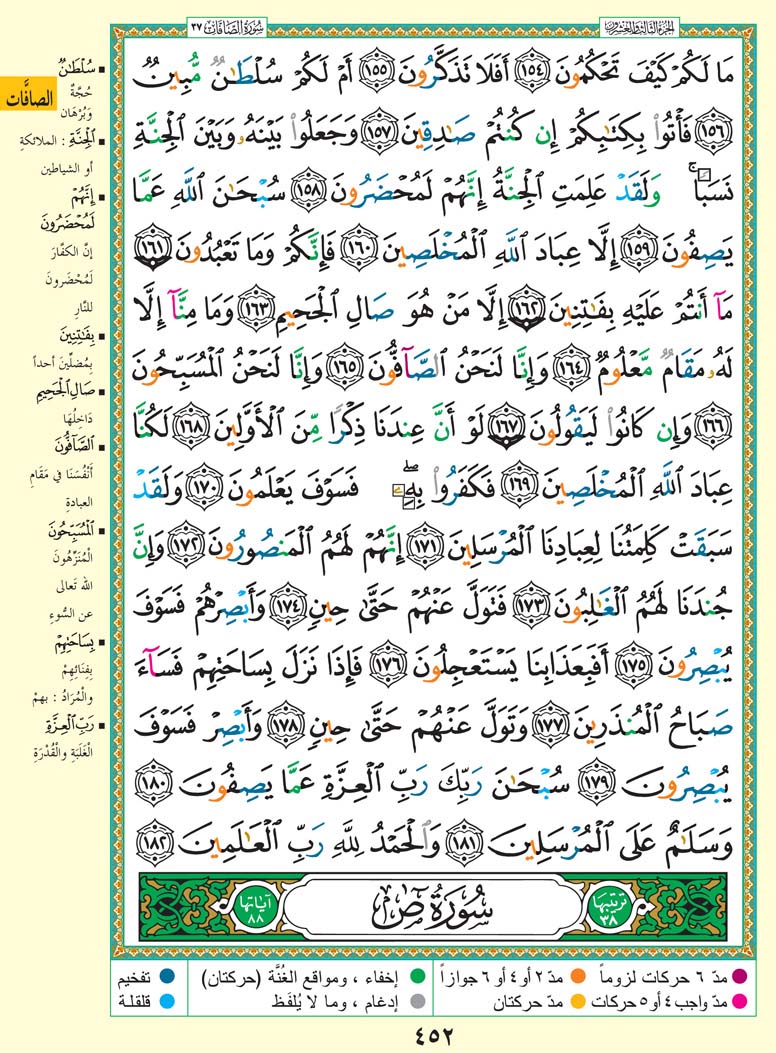 الجزء الثالث والعشرون
سورة الصافات ٣٧
مَا لَكُمْ كَيْفَ تَحْكُمُونَ ١٥٤ أَفَلَا تَذَكَّرُونَ ١٥٥ أَمْ لَكُمْ سُلْطَٰنٌ مُّبِينٌ
١٥٦ فَأْتُوا۟ بِكِتَٰبِكُمْ إِن كُنتُمْ صَٰدِقِينَ ١٥٧ وَجَعَلُوا۟ بَيْنَهُۥ وَبَيْنَ ٱلْجِنَّةِ
نَسَبًا ۚ وَلَقَدْ عَلِمَتِ ٱلْجِنَّةُ إِنَّهُمْ لَمُحْضَرُونَ ١٥٨ سُبْحَٰنَ ٱللَّهِ عَمَّا
يَصِفُونَ ١٥٩ إِلَّا عِبَادَ ٱللَّهِ ٱلْمُخْلَصِينَ ١٦٠ فَإِنَّكُمْ وَمَا تَعْبُدُونَ ١٦١
مَآ أَنتُمْ عَلَيْهِ بِفَٰتِنِينَ ١٦٢ إِلَّا مَنْ هُوَ صَالِ ٱلْجَحِيمِ ١٦٣ وَمَا مِنَّآ إِلَّا
لَهُۥ مَقَامٌ مَّعْلُومٌ ١٦٤ وَإِنَّا لَنَحْنُ ٱلصَّآفُّونَ ١٦٥ وَإِنَّا لَنَحْنُ ٱلْمُسَبِّحُونَ
١٦٦ وَإِن كَانُوا۟ لَيَقُولُونَ ١٦٧ لَوْ أَنَّ عِندَنَا ذِكْرًا مِّنَ ٱلْأَوَّلِينَ ١٦٨ لَكُنَّا
عِبَادَ ٱللَّهِ ٱلْمُخْلَصِينَ ١٦٩ فَكَفَرُوا۟ بِهِۦ ۖ فَسَوْفَ يَعْلَمُونَ ١٧٠ وَلَقَدْ
سَبَقَتْ كَلِمَتُنَا لِعِبَادِنَا ٱلْمُرْسَلِينَ ١٧١ إِنَّهُمْ لَهُمُ ٱلْمَنصُورُونَ ١٧٢ وَإِنَّ
جُندَنَا لَهُمُ ٱلْغَٰلِبُونَ ١٧٣ فَتَوَلَّ عَنْهُمْ حَتَّىٰ حِينٍ ١٧٤ وَأَبْصِرْهُمْ فَسَوْفَ
يُبْصِرُونَ ١٧٥ أَفَبِعَذَابِنَا يَسْتَعْجِلُونَ ١٧٦ فَإِذَا نَزَلَ بِسَاحَتِهِمْ فَسَآءَ
صَبَاحُ ٱلْمُنذَرِينَ ١٧٧ وَتَوَلَّ عَنْهُمْ حَتَّىٰ حِينٍ ١٧٨ وَأَبْصِرْ فَسَوْفَ
يُبْصِرُونَ ١٧٩ سُبْحَٰنَ رَبِّكَ رَبِّ ٱلْعِزَّةِ عَمَّا يَصِفُونَ ١٨٠
وَسَلَٰمٌ عَلَى ٱلْمُرْسَلِينَ ١٨١ وَٱلْحَمْدُ لِلَّهِ رَبِّ ٱلْعَٰلَمِينَ ١٨٢
ترتيبها ٣٨
سُورَةُ صٓ
آياتها ٨٨
الصافَّات
سُلْطَٰنٌ
حُجَّةٌ
وَبُرْهَان
ٱلْجِنَّةِ : الملائكةِ
أو الشياطين
إِنَّهُمْ
لَمُحْضَرُونَ
إنَّ الكفَّارَ
لَمُحْضَرونَ
للنَّارِ
بِفَٰتِنِينَ
بِمُضلِّينَ أحداً
صَالِ ٱلْجَحِيمِ
دَاخِلُهَا
ٱلصَّآفُّونَ
أَنْفُسَنَا في مَقَامِ
العبادةِ
ٱلْمُسَبِّحُونَ
الْمُنَزِّهُونَ
الله تَعالى
عن السُّوءِ
بِسَاحَتِهِمْ
بِفِنَائِهِمْ
والْمُرَادُ : بهمْ
رَبِّ ٱلْعِزَّةِ
الْغَلَبَةِ والْقُدْرَةِ
مدّ ٦ حركات لزوماً
مدّ ٢ أو ٤ أو ٦ جوازاً
إخفاء ، ومواقع الغُنَّة (حركتان)
تفخيم
مدّ واجب ٤ أو ٥ حركات
مدّ حركتان
إدغام ، وما لا يُلفَظ
قلقلة
٤٥٢